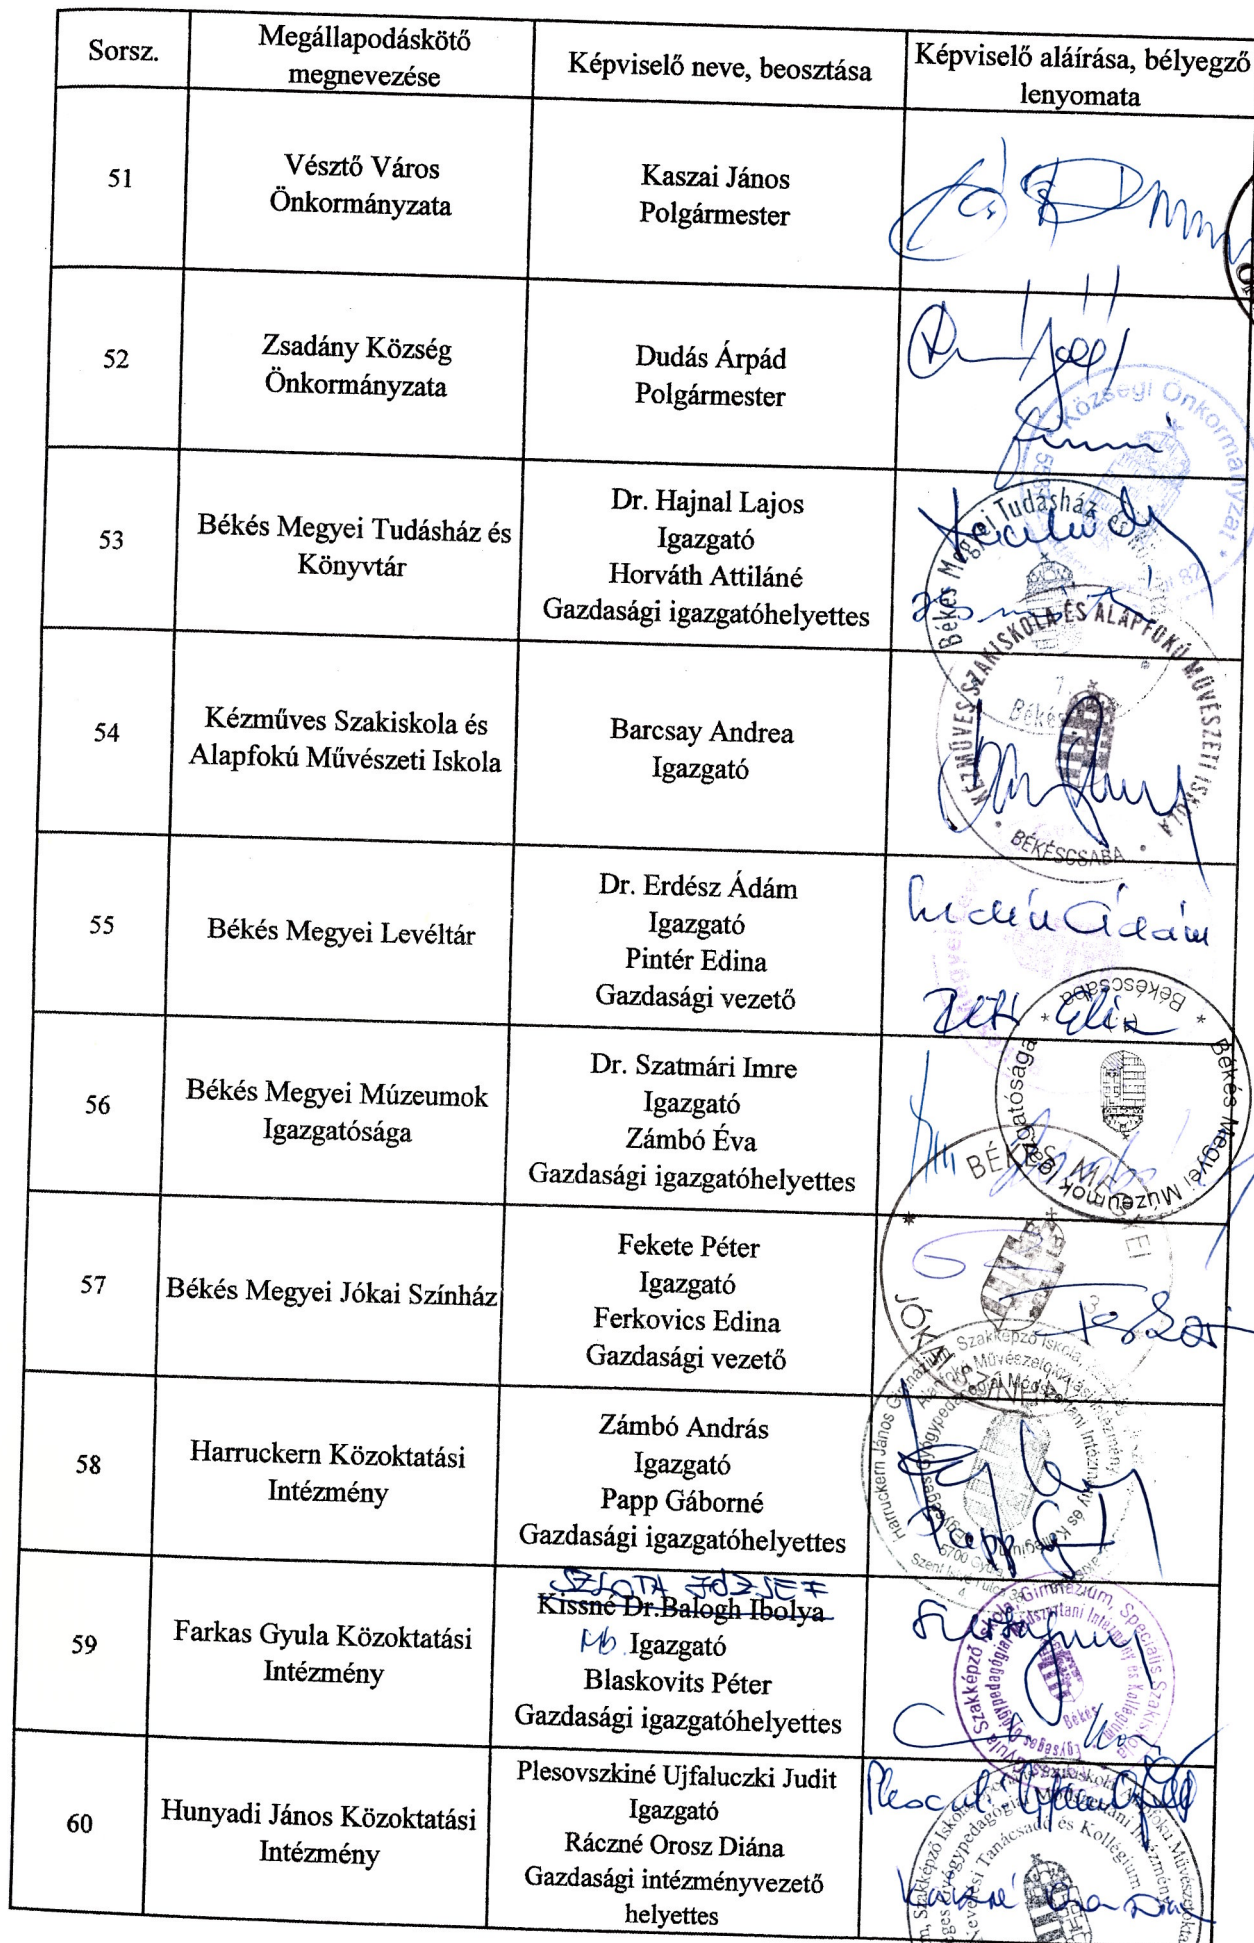 Sorsz.
Megállapodáskötő
megnevezése
Képviselő neve, beosztása
Képviselő aláírása, bélyegző
lenyomata
51
Vésztő Város
Önkormányzata
Kaszai János
Polgármester
52
Zsadány Község
Önkormányzata
Dudás Árpád
Polgármester
Községi Önkormányzat
53
Békés Megyei Tudásház és
Könyvtár
Dr. Hajnal Lajos
Igazgató
Horváth Attiláné
Gazdasági igazgatóhelyettes
Békés Megyei Tudásház és
54
Kézműves Szakiskola és
Alapfokú Művészeti Iskola
Barcsay Andrea
Igazgató
KÉZMŰVES SZAKISKOLA ÉS ALAPFOKÚ MŰVÉSZETI ISKOLA
BÉKÉSCSABA
55
Békés Megyei Levéltár
Dr. Erdész Ádám
Igazgató
Pintér Edina
Gazdasági vezető
56
Békés Megyei Múzeumok
Igazgatósága
Dr. Szatmári Imre
Igazgató
Zámbó Éva
Gazdasági igazgatóhelyettes
Békés Megyei Múzeumok Igazgatósága
Békéscsaba
57
Békés Megyei Jókai Színház
Fekete Péter
Igazgató
Ferkovics Edina
Gazdasági vezető
BÉKÉS MEGYEI
JÓKAI SZÍNHÁZ
58
Harruckern Közoktatási
Intézmény
Zámbó András
Igazgató
Papp Gáborné
Gazdasági igazgatóhelyettes
Harruckern János Gimnázium, Szakképző Iskola,
59
Farkas Gyula Közoktatási
Intézmény
SZLOTA JÓZSEF
Kissné Dr.Balogh Ibolya
Mb. Igazgató
Blaskovits Péter
Gazdasági igazgatóhelyettes
Gyula Szakképző Iskola, Gimnázium, Speciális Szakiskola
Békés
60
Hunyadi János Közoktatási
Intézmény
Plesovszkiné Ujfaluczki Judit
Igazgató
Ráczné Orosz Diána
Gazdasági intézményvezető
helyettes